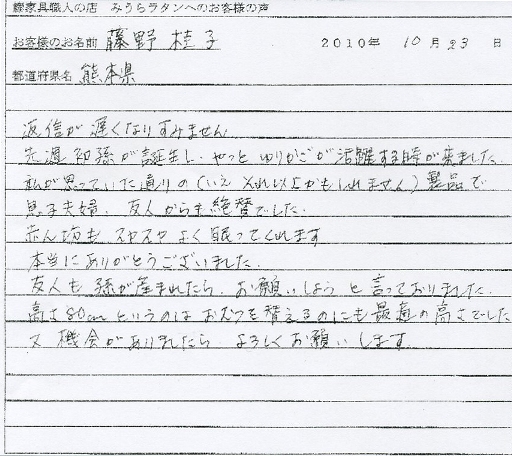 籐家具職人の店 みうらラタンへのお客様の声
お客様のお名前 藤野 桂子 2010年 10月 23日
都道府県名 熊本県
返信が遅くなりすみません
先週初孫が誕生し、やっとゆりかごが活躍する時が来ました。
私が思っていた通りの(いえそれ以上かもしれません)製品で
息子夫婦、友人からも絶賛でした。
赤ん坊もスヤスヤよく眠ってくれます
本当にありがとうございました。
友人も孫が産まれたら、お願いしようと言っておりました。
高さ80cmというのはおむつを替えるのにも最適の高さでした
又機会がありましたらよろしくお願いします。